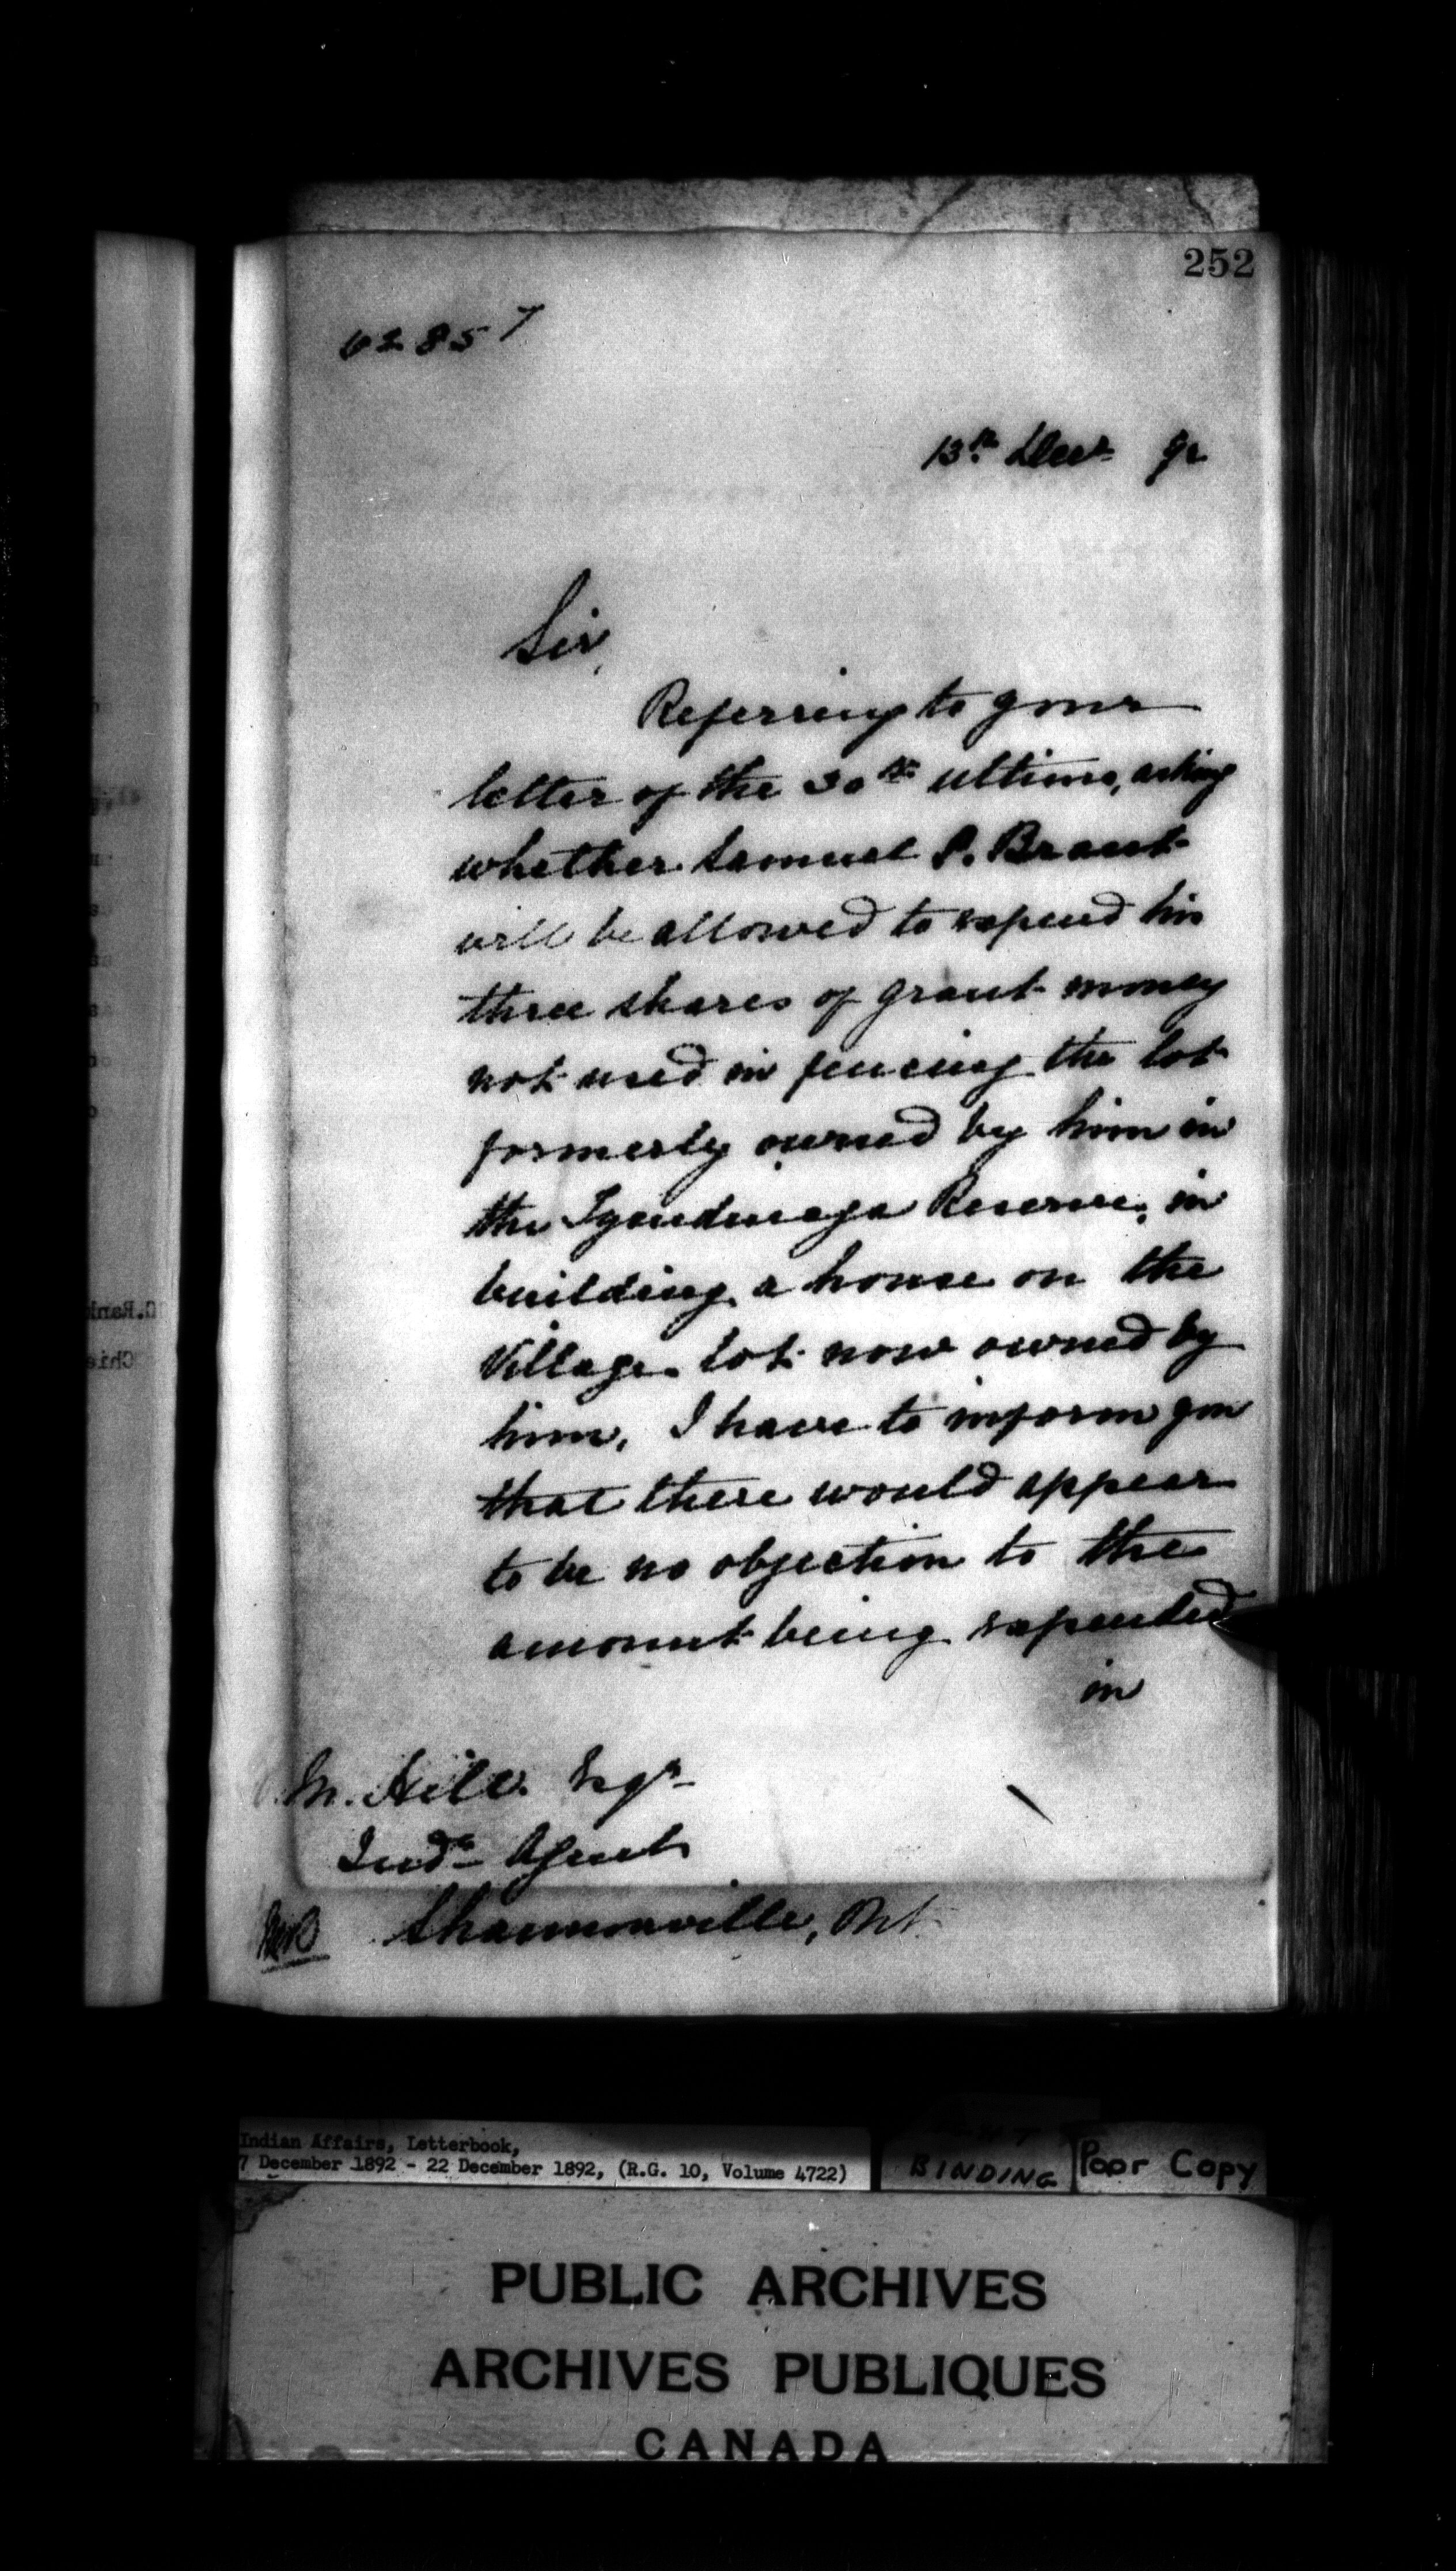 252
62857
13th Decr 92
Sir,
Referring to your
letter of the 30th ultimo, asking
whether Samuel P. Brant
will be allowed to expend his
three shares of grant money
not used in fencing the lot
formerly owned by him in
the Tyendinaga Reserve, in
building a house on the
Village lot now owned by
him, I have to inform you
that there would appear
to be no objection to the
amount being expended
in
M. Hill Esqr
Indn Agent
Shannonville, Ont.
Indian Affairs, Letterbook,
7 December 1892 - 22 December 1892, (R.G. 10, Volume 4722)
BINDING
Poor Copy
PUBLIC ARCHIVES
ARCHIVES PUBLIQUES
CANADA